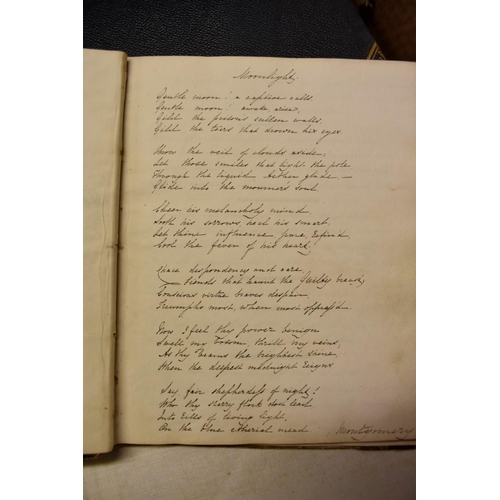 Moonlight,
Gentle moon! a captive calls,
Gentle moon! awake, arise,
Gild the prisons sullen walls,
Gild the tears that drown his eyes
Throw the veil of clouds aside,
Let those smiles that light the pole
Through the liquid Aether glide, —
Glide into the mourners soul.
Cheer his melancholy mind
Sooth his sorrows, heal his smart,
Let thine influence, pure, refin'd
Cool the fever of his heart,
Chace despondency and care,
— Fiends that haunt the Guilty breast,
Conscious virtue braves despair
Triumphs most, when most oppress'd.
Now I feel thy power benign
Swell my bosom, thrill my veins,
As thy beams the brightest shine
When the deepest midnight reigns
Say fair shepherdess of night!
Who thy starry flock dost lead
Unto rills of living light,
On the blue etherial mead
Montgomery